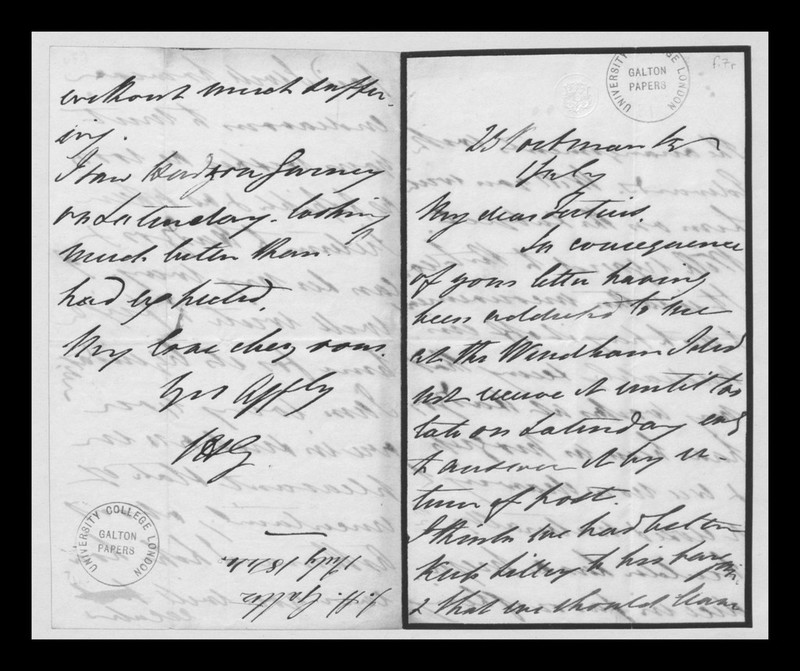 without much suffer-
ing.
I saw Hudson Gurney
on Saturday. looking
much better than I
had expected.
My love chez vous.
Yrs Affly
UNIVERSITY COLLEGE LONDON
GALTON
PAPERS
J. H. Galton
July
UNIVERSITY COLLEGE LONDON
GALTON
PAPERS
f.7r
23 Portman
July
My dear Tertius.
In consequence
of your letter having
been addressed to me
at the Windham I did
not receive it until too
late on Saturday eveg
to answer it by re-
turn of post.
I think we had better
keep to his
& that we should